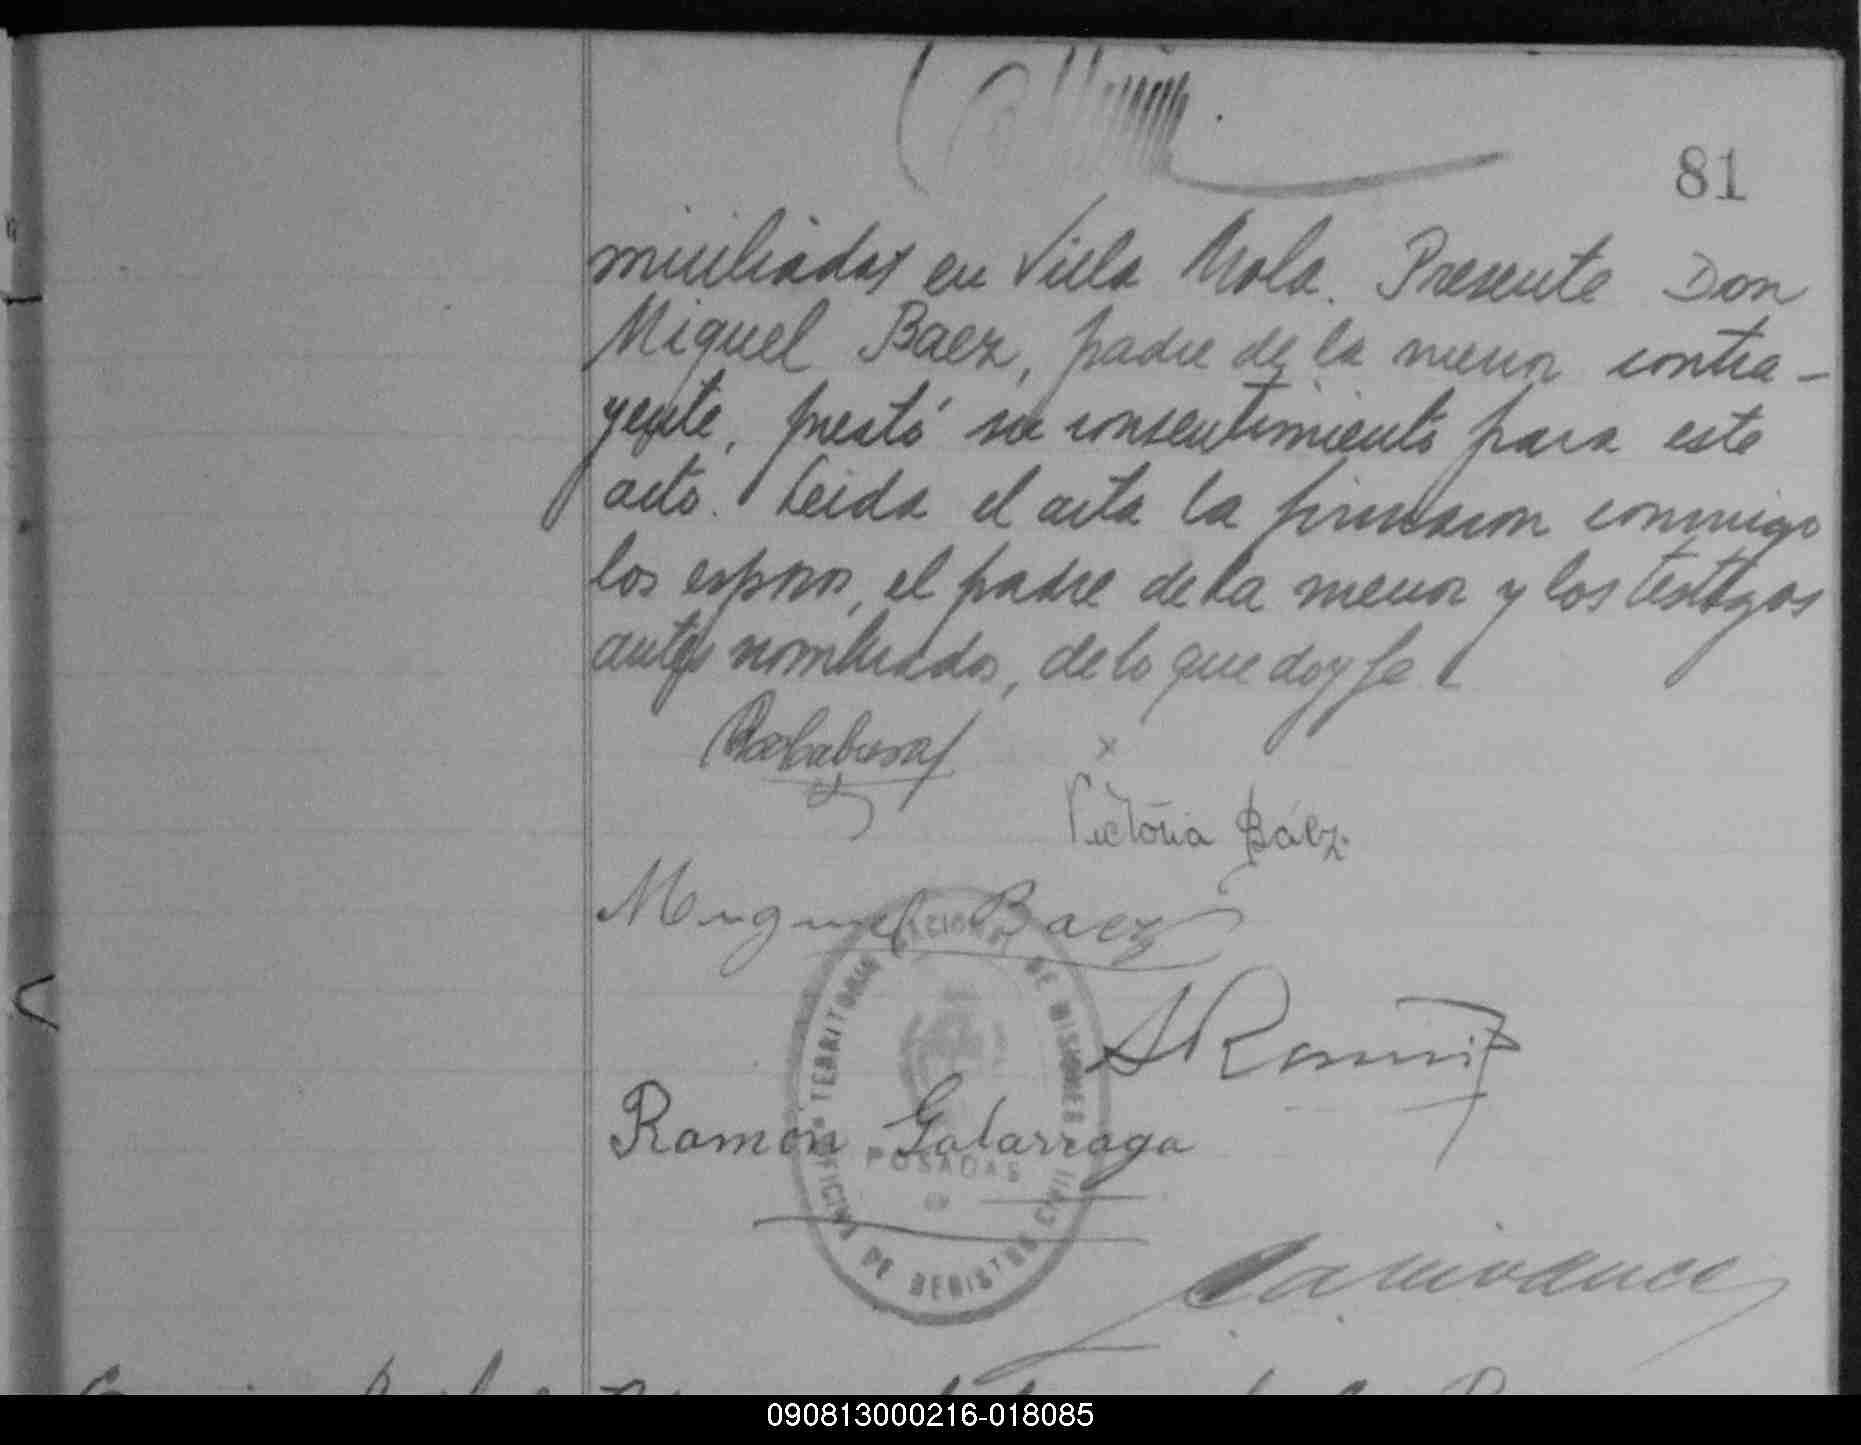 81
miciliados en Villa Urola. Presente Don
Miguel Baez, padre de la menor contra-
yente, prestó su consentimiento para este
acto. Leida el acta la firmaron conmigo
los esposos, el padre de la menor y los testigos
antes nombrados, de lo que doy fe.
x
Victoria Báez
Miguel Baez
TERRITORIO NACIONAL DE MISIONES
A Ramirez
Ramón Galarraga
POSADAS
OFICINA DE REGISTRO CIVIL
090813000216-018085